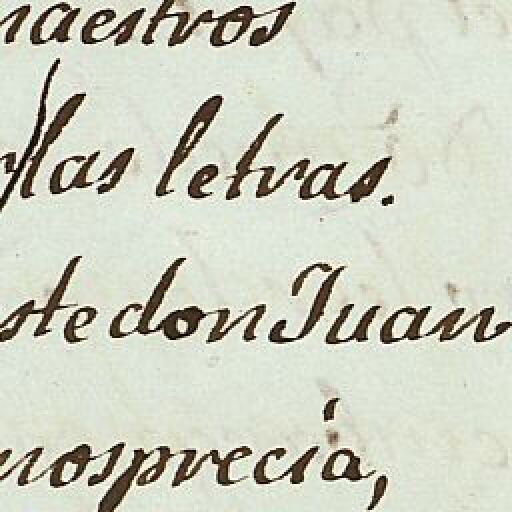 maestros
las letras.
ste don Juan
nosprecia,